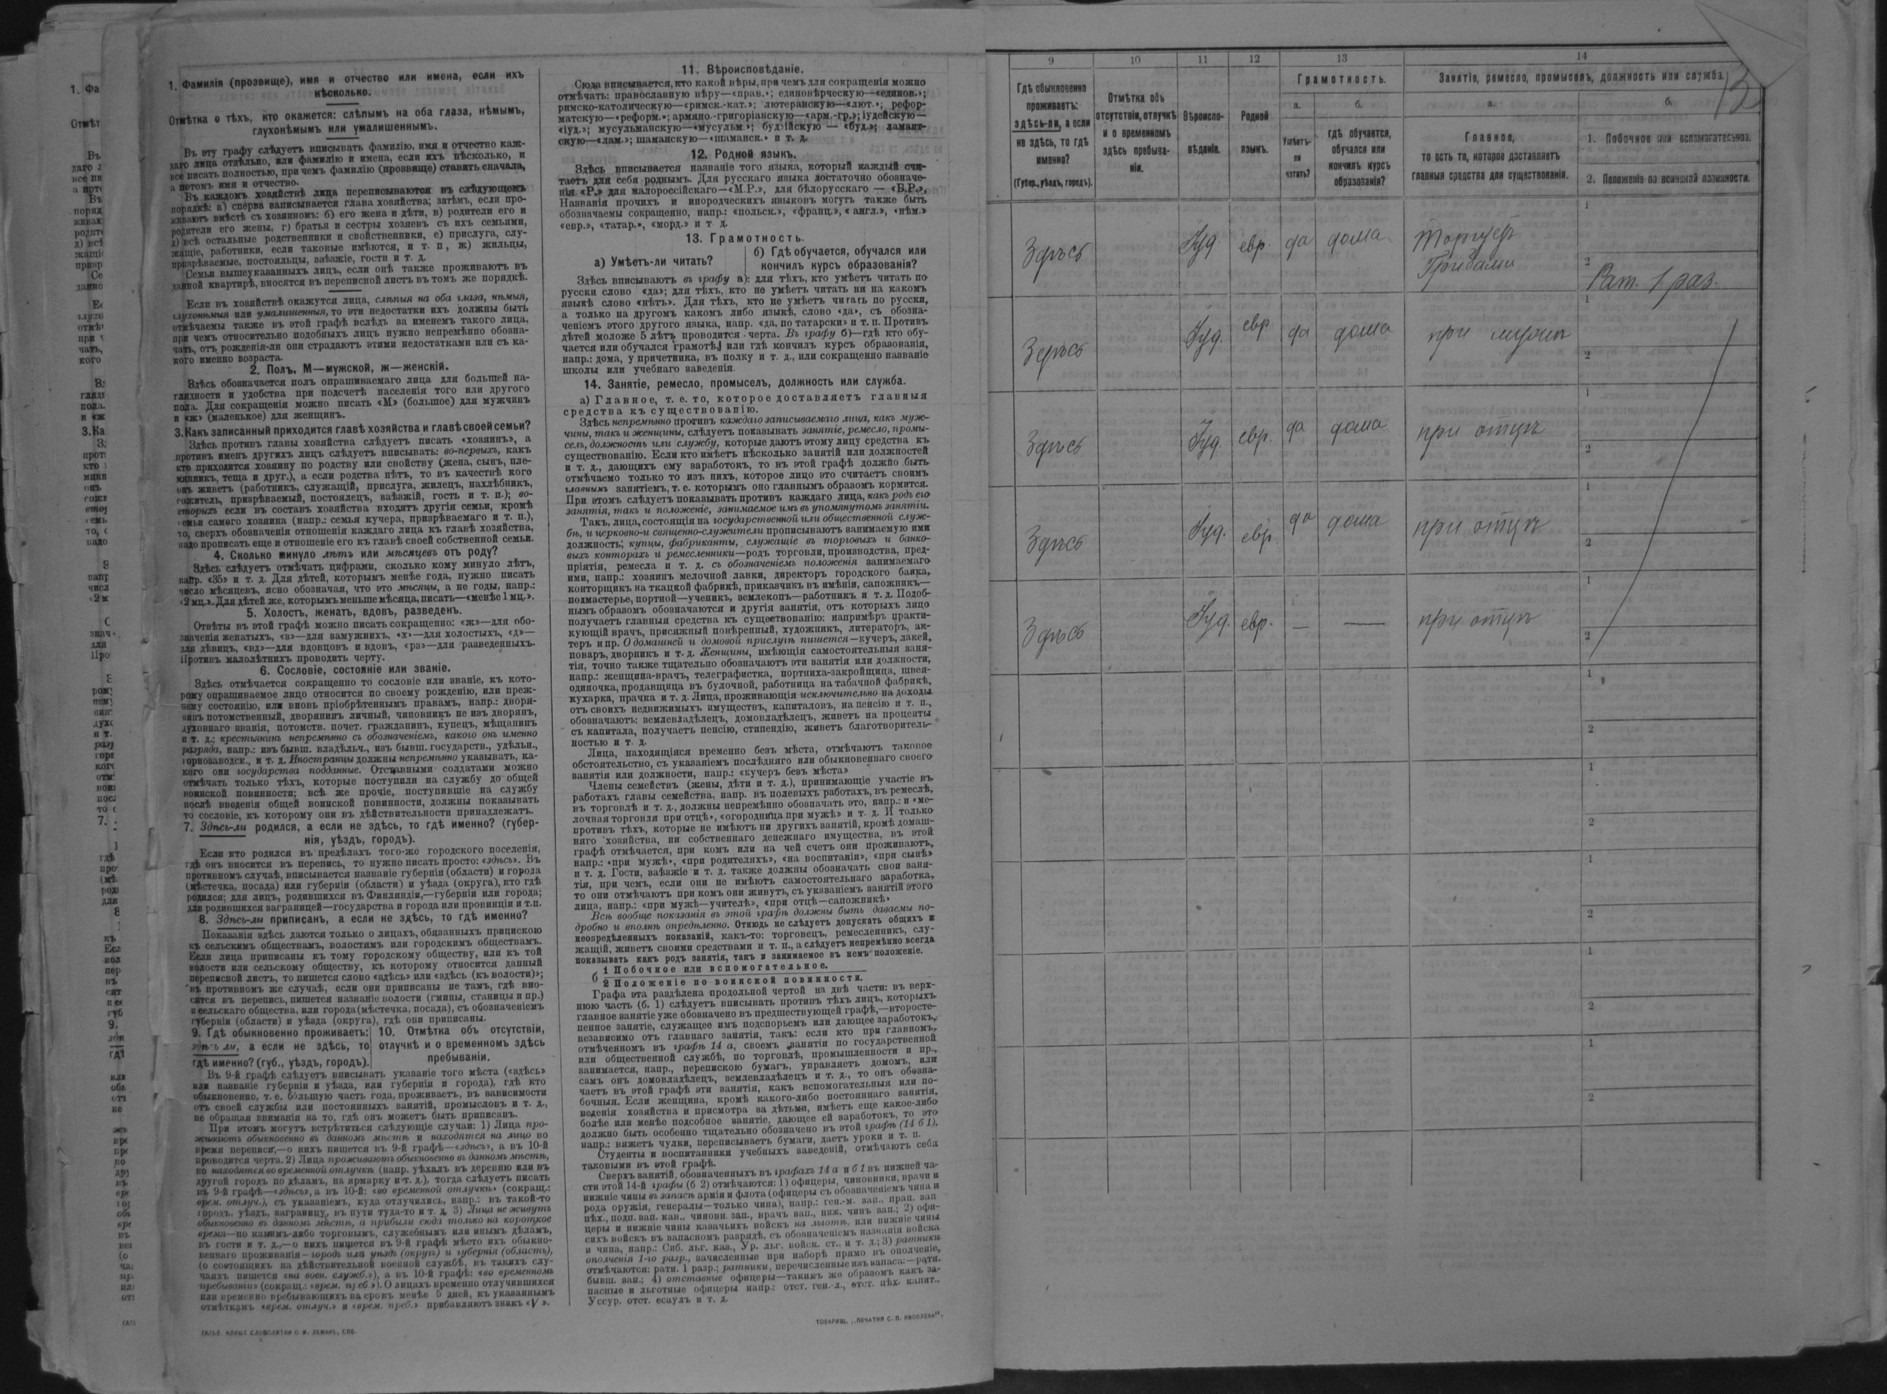 1. Фамилія (прозвище), имя и отчество или имена, если ихъ
нѣсколько.
Отмѣтка о тѣхъ, кто окажется: слѣпымъ на оба глаза, нѣмымъ,
глухонѣмымъ или умалишеннымъ.
Въ эту графу слѣдуетъ вписывать фамилію, имя и отчество каж-
даго лица отдѣльно, или фамилію и имена, если ихъ нѣсколько, и
все писать полностью, при чемъ фамилію (прозвище) ставить сначала,
а потомъ имя и отчество.
Въ каждомъ хозяйствѣ лица переписываются въ слѣдующемъ
порядкѣ: а) сперва записывается глава хозяйства; затѣмъ, если про-
живаютъ вмѣстѣ съ хозяиномъ: б) его жена и дѣти, в) родители его и
родители его жены, г) братья и сестры хозяевъ съ ихъ семьями,
д) всѣ остальные родственники и свойственники, е) прислуга, слу-
жащіе, работники, если таковые имѣются, и т. п., ж) жильцы,
призрѣваемые, постояльцы, заѣзжіе, гости и т. д.
Семьи вышеуказанныхъ лицъ, если онѣ также проживаютъ въ
данной квартирѣ, вносятся въ переписной листъ въ томъ же порядкѣ.
Если въ хозяйствѣ окажутся лица, слѣпыя на оба глаза, нѣмыя,
глухонѣмыя или умалишенныя, то эти недостатки ихъ должны быть
отмѣчаемы также въ этой графѣ вслѣдъ за именемъ такого лица,
при чемъ относительно подобныхъ лицъ нужно непремѣнно обозна-
чать, отъ рожденія-ли они страдаютъ этими недостатками или съ ка-
кого именно возраста.
2. Полъ, М—мужской, ж—женскій.
Здѣсь обозначается полъ опрашиваемаго лица для большей на-
глядности и удобства при подсчетѣ населенія того или другого
пола. Для сокращенія можно писать «М» (большое) для мужчинъ
и «ж» (маленькое) для женщинъ.
3. Какъ записанный приходится главѣ хозяйства и главѣ своей семьи?
Здѣсь противъ главы хозяйства слѣдуетъ писать «хозяинъ», а
противъ именъ другихъ лицъ слѣдуетъ вписывать: во-первыхъ, какъ
кто приходится хозяину по родству или свойству (жена, сынъ, пле-
мянникъ, теща и друг.), а если родства нѣтъ, то въ качествѣ кого
онъ живетъ (работникъ, служащій, прислуга, жилецъ, нахлѣбникъ,
сожитель, призрѣваемый, постоялецъ, заѣзжій, гость и т. п.); во-
вторыхъ если въ составъ хозяйства входятъ другія семьи, кромѣ
семьи самого хозяина (напр.: семья кучера, призрѣваемаго и т. п.),
то, сверхъ обозначенія отношенія каждаго лица къ главѣ хозяйства,
надо прописать еще и отношеніе его къ главѣ своей собственной семьи.
4. Сколько минуло лѣтъ или мѣсяцевъ отъ роду?
Здѣсь слѣдуетъ отмѣчать цифрами, сколько кому минуло лѣтъ,
напр. «35» и т. д. Для дѣтей, которымъ менѣе года, нужно писать
число мѣсяцевъ, ясно обозначая, что это мѣсяцы, а не годы, напр.:
«2 мц.». Для дѣтей же, которымъ меньше мѣсяца, писать—«менѣе 1 мц.».
5. Холостъ, женатъ, вдовъ, разведенъ.
Отвѣты въ этой графѣ можно писать сокращенно: «ж»—для обо-
значенія женатыхъ, «з»—для замужнихъ, «х»—для холостыхъ, «д»—
для дѣвицъ, «вд»—для вдовцовъ и вдовъ, «ра»—для разведенныхъ.
Противъ малолѣтнихъ проводить черту.
6. Сословіе, состояніе или званіе.
Здѣсь отмѣчается сокращенно то сословіе или званіе, къ кото-
рому опрашиваемое лицо относится по своему рожденію, или преж-
нему состоянію, или вновь пріобрѣтеннымъ правамъ, напр.: дворя-
нинъ потомственный, дворянинъ личный, чиновникъ не изъ дворянъ,
духовнаго званія, потомств. почет. гражданинъ, купецъ, мѣщанинъ
и т. д.; крестьянинъ непремѣнно съ обозначеніемъ, какого онъ именно
разряда, напр.: изъ бывш. владѣльч., изъ бывш. государств., удѣльн.,
горнозаводск., и т. д. Иностранцы должны непремѣнно указывать, ка-
кого они государства подданные. Отставными солдатами можно
отмѣчать только тѣхъ, которые поступили на службу до общей
воинской повинности; всѣ же прочіе, поступившіе на службу
послѣ введенія общей воинской повинности, должны показывать
то сословіе, къ которому они въ дѣйствительности принадлежатъ.
7. Здѣсь-ли родился, а если не здѣсь, то гдѣ именно? (губер-
нія, уѣздъ, городъ).
Если кто родился въ предѣлахъ того-же городского поселенія,
гдѣ онъ вносится въ перепись, то нужно писать просто: «здѣсь». Въ
противномъ случаѣ, вписывается названіе губерніи (области) и города
(мѣстечка, посада) или губерніи (области) и уѣзда (округа), кто гдѣ
родился; для лицъ, родившихся въ Финляндіи,—губерніи или города;
для родившихся заграницей—государства и города или провинціи и т.п.
8. Здѣсь-ли приписанъ, а если не здѣсь, то гдѣ именно?
Показанія здѣсь даются только о лицахъ, обязанныхъ припискою
къ сельскимъ обществамъ, волостямъ или городскимъ обществамъ.
Если лица приписаны къ тому городскому обществу, или къ той
волости или сельскому обществу, къ которому относится данный
переписной листъ, то пишется слово «здѣсь» или «здѣсь (къ волости)»;
въ противномъ же случаѣ, если они приписаны не тамъ, гдѣ вно-
сятся въ перепись, пишется названіе волости (гмины, станицы и пр.)
и сельскаго общества, или города (мѣстечка, посада), съ обозначеніемъ
губерніи (области) и уѣзда (округа), гдѣ они приписаны.
9. Гдѣ обыкновенно проживаетъ:
здѣсь ли, а если не здѣсь, то
гдѣ именно? (губ., уѣздъ, городъ).
10. Отмѣтка объ отсутствіи,
отлучкѣ и о временномъ здѣсь
пребываніи.
Въ 9-й графѣ слѣдуетъ вписывать указаніе того мѣста («здѣсь»
или названіе губерніи и уѣзда, или губерніи и города), гдѣ кто
обыкновенно, т. е. бо́льшую часть года, проживаетъ, въ зависимости
отъ своей службы или постоянныхъ занятій, промысловъ и т. д.,
не обращая вниманія на то, гдѣ онъ можетъ быть приписанъ.
При этомъ могутъ встрѣтиться слѣдующіе случаи: 1) Лица про-
живаютъ обыкновенно въ данномъ мѣстѣ и находятся на лицо во
время переписи,—о нихъ пишется въ 9-й графѣ—«здѣсь», а въ 10-й
проводится черта. 2) Лица проживаютъ обыкновенно въ данномъ мѣстѣ,
но находятся во временной отлучкѣ (напр. уѣхалъ въ деревню или въ
другой городъ по дѣламъ, на ярмарку и т. д.), тогда слѣдуетъ писать
въ 9-й графѣ—«здѣсь», а въ 10-й: «во временной отлучкѣ» (сокращ.:
врем. отлуч.), съ указаніемъ, куда отлучились, напр.: въ такой-то
городъ, уѣздъ, заграницу, въ пути туда-то и т. д. 3) Лица не живутъ
обыкновенно въ данномъ мѣстѣ, а прибыли сюда только на короткое
время—по какимъ-либо торговымъ, служебнымъ или инымъ дѣламъ,
въ гости и т. д.,—о нихъ пишется въ 9-й графѣ мѣсто ихъ обыкно-
веннаго проживанія—городъ или уѣздъ (округъ) и губернія (область),
(о состоящихъ на дѣйствительной военной службѣ, въ такихъ слу-
чаяхъ пишется «на воен. служб.»), а въ 10-й графѣ: «во временномъ
пребываніи» (сокращ.: «врем. преб.»). О лицахъ временно отлучившихся
или временно пребывающихъ на срокъ менѣе 5 дней, къ указаннымъ
отмѣткамъ «врем. отлуч.» и «врем. преб.» прибавляютъ знакъ «V».
11. Вѣроисповѣданіе.
Сюда вписывается, кто какой вѣры, при чемъ для сокращенія можно
отмѣчать: православную вѣру—«прав.»; единовѣрческую—«единов.»;
римско-католическую—«римск.-кат.»; лютеранскую—«лют.»; рефор-
матскую—«реформ.»; армяно-григоріанскую—«арм.-гр.»; іудейскую—
«іуд.»; мусульманскую—«мусульм.»; буддійскую — «буд.»; ламаит-
скую—«лам.»; шаманскую—«шаманск.» и т. д.
12. Родной языкъ.
Здѣсь вписывается названіе того языка, который каждый счи-
таетъ для себя роднымъ. Для русскаго языка достаточно обозначе-
нія «Р.» для малороссійскаго—«М.Р.», для бѣлорусскаго — «Б.Р.».
Названія прочихъ и инородческихъ языковъ могутъ также быть
обозначаемы сокращенно, напр.: «польск.», «франц.», «англ.», «нѣм.»
«евр.», «татар.», «морд.» и т д.
13. Грамотность.
а) Умѣетъ-ли читать?
б) Гдѣ обучается, обучался или
кончилъ курсъ образованія?
Здѣсь вписываютъ въ графу а): для тѣхъ, кто умѣетъ читать по
русски слово «да»; для тѣхъ, кто не умѣетъ читать ни на какомъ
языкѣ слово «нѣтъ». Для тѣхъ, кто не умѣетъ читать по русски,
а только на другомъ какомъ либо языкѣ, слово «да», съ обозна-
ченіемъ этого другого языка, напр. «да, по татарски» и т. п. Противъ
дѣтей моложе 5 лѣтъ проводится черта. Въ графу б)—гдѣ кто обу-
чается или обучался грамотѣ, или гдѣ кончилъ курсъ образованія,
напр.: дома, у причетника, въ полку и т. д., или сокращенно названіе
школы или учебнаго заведенія.
14. Занятіе, ремесло, промыселъ, должность или служба.
а) Главное, т. е. то, которое доставляетъ главныя
средства къ существованію.
Здѣсь непремѣнно противъ каждаго записываемаго лица, какъ муж-
чины, такъ и женщины, слѣдуетъ показывать занятіе, ремесло, промы-
селъ, должность или службу, которые даютъ этому лицу средства къ
существованію. Если кто имѣетъ нѣсколько занятій или должностей
и т. д., дающихъ ему заработокъ, то въ этой графѣ должно быть
отмѣчаемо только то изъ нихъ, которое лицо это считаетъ своимъ
главнымъ занятіемъ, т. е. которымъ оно главнымъ образомъ кормится.
При этомъ слѣдуетъ показывать противъ каждаго лица, какъ родъ его
занятія, такъ и положеніе, занимаемое имъ въ упомянутомъ занятіи.
Такъ, лица, состоящія на государственной или общественной служ-
бѣ, и церковно-и священно-служители прописываютъ занимаемую ими
должность; купцы, фабриканты, служащіе въ торговыхъ и банко-
выхъ конторахъ и ремесленники—родъ торговли, производства, пред-
пріятія, ремесла и т. д. съ обозначеніемъ положенія занимаемаго
ими, напр.: хозяинъ мелочной лавки, директоръ городского банка,
конторщикъ на ткацкой фабрикѣ, приказчикъ въ имѣніи, сапожникъ—
подмастерье, портной—ученикъ, землекопъ—работникъ и т. д. Подоб-
нымъ образомъ обозначаются и другія занятія, отъ которыхъ лицо
получаетъ главныя средства къ существованію: напримѣръ практи-
кующій врачъ, присяжный повѣренный, художникъ, литераторъ, ак-
теръ и пр. О домашней и домовой прислугѣ пишется—кучеръ, лакей,
поваръ, дворникъ и т. д. Женщины, имѣющія самостоятельныя заня-
тія, точно также тщательно обозначаютъ эти занятія или должности,
напр.: женщина-врачъ, телеграфистка, портниха-закройщица, швея-
одиночка, продавщица въ булочной, работница на табачной фабрикѣ,
кухарка, прачка и т. д. Лица, проживающія исключительно на доходы
отъ своихъ недвижимыхъ имуществъ, капиталовъ, на пенсію и т. п.,
обозначаютъ: землевладѣлецъ, домовладѣлецъ, живетъ на проценты
съ капитала, получаетъ пенсію, стипендію, живетъ благотворитель-
ностью и т. д.
Лица, находящіяся временно безъ мѣста, отмѣчаютъ таковое
обстоятельство, съ указаніемъ послѣдняго или обыкновеннаго своего
занятія или должности, напр.: «кучеръ безъ мѣста»
Члены семействъ (жены, дѣти и т. д.), принимающіе участіе въ
работахъ главы семейства, напр. въ полевыхъ работахъ, въ ремеслѣ,
въ торговлѣ и т. д., должны непремѣнно обозначать это, напр.: и «ме-
лочная торговля при отцѣ», «огородница при мужѣ» и т. д. И только
противъ тѣхъ, которые не имѣютъ ни другихъ занятій, кромѣ домаш-
няго хозяйства, ни собственнаго денежнаго имущества, въ этой
графѣ отмѣчается, при комъ или на чей счетъ они проживаютъ,
напр.: «при мужѣ», «при родителяхъ», «на воспитаніи», «при сынѣ»
и т. д. Гости, заѣзжіе и т. д. также должны обозначать свои заня-
тія, при чемъ, если они не имѣютъ самостоятельнаго заработка,
то они отмѣчаютъ при комъ они живутъ, съ указаніемъ занятій этого
лица, напр.: «при мужѣ—учителѣ», «при отцѣ—сапожникѣ»
Всѣ вообще показанія въ этой графѣ должны быть даваемы по-
дробно и вполнѣ опредѣленно. Отнюдь не слѣдуетъ допускать общихъ и
неопредѣленныхъ показаній, какъ-то: торговецъ, ремесленникъ, слу-
жащій, живетъ своими средствами и т. п., а слѣдуетъ непремѣнно всегда
показывать какъ родъ занятія, такъ и занимаемое въ немъ положеніе.
б 1 Побочное или вспомогательное.
2 Положеніе по воинской повинности.
Графа эта раздѣлена продольной чертой на двѣ части: въ верх-
нюю часть (б. 1) слѣдуетъ вписывать противъ тѣхъ лицъ, которыхъ
главное занятіе уже обозначено въ предшествующей графѣ,—второсте-
пенное занятіе, служащее имъ подспорьемъ или дающее заработокъ,
независимо отъ главнаго занятія, такъ: если кто при главномъ,
отмѣченномъ въ графѣ 14 а, своемъ занятіи по государственной
или общественной службѣ, по торговлѣ, промышленности и пр.,
занимается, напр., перепискою бумагъ, управляетъ домомъ, или
самъ онъ домовладѣлецъ, землевладѣлецъ и т. д., то онъ обозна-
чаетъ въ этой графѣ эти занятія, какъ вспомогательныя или по-
бочныя. Если женщина, кромѣ какого-либо постояннаго занятія,
веденія хозяйства и присмотра за дѣтьми, имѣетъ еще какое-либо
болѣе или менѣе подсобное занятіе, дающее ей заработокъ, то это
должно быть особенно тщательно обозначено въ этой графѣ (14 б 1),
напр.: вяжетъ чулки, переписываетъ бумаги, даетъ уроки и т. п.
Студенты и воспитанники учебныхъ заведеній, отмѣчаютъ себя
таковыми въ этой графѣ.
Сверхъ занятій, обозначенныхъ въ графахъ 14 а и б 1 въ нижней ча-
сти этой 14-й графы (б 2) отмѣчаются: 1) офицеры, чиновники, врачи и
нижніе чины въ запасѣ арміи и флота (офицеры съ обозначеніемъ чина и
рода оружія, генералы—только чина), напр.: ген.-м. зап., прап. зап
пѣх., подп. зап. кав., чиновн. зап., врачъ зап., ниж. чинъ зап.; 2) офи-
церы и нижніе чины казачьихъ войскъ на льготѣ, или нижніе чины
сихъ войскъ въ запасномъ разрядѣ, съ обозначеніемъ названія войска
и чина, напр.: Сиб. льг. каз., Ур. льг. войск. ст., и т. д.; 3) ратники
ополченія 1-го разр., зачисленные при наборѣ прямо въ ополченіе,
отмѣчаются: ратн. 1 разр.; ратники, перечисленные изъ запаса:—ратн.
бывш. зап.; 4) отставные офицеры—такимъ же образомъ какъ за-
пасные и льготные офицеры напр.: отст. ген.-л., отст. пѣх. капит.,
Уссур. отст. есаулъ и т. д.
ТОВАРИЩ. „ПЕЧАТНЯ С. П. ЯКОВЛЕВА".
9 10 11 12 13 14
Гдѣ обыкновенно
проживаетъ:
здѣсь-ли, а если
не здѣсь, то гдѣ
именно?
(Губер., уѣздъ, городъ).
Отмѣтка объ
отсутствіи, отлучкѣ
и о временномъ
здѣсь пребыва-
ніи.
Вѣроиспо-
вѣданіе.
Родной
языкъ.
Грамотность.
а. б.
Умѣетъ-
ли
читать?
гдѣ обучается,
обучался или
кончилъ курсъ
образованія?
Занятіе, ремесло, промыселъ, должность или служба.
а. б.
Главное,
то есть то, которое доставляетъ
главныя средства для существованія.
1. Побочное или вспомогательное.
2. Положеніе по воинской повинности.
Здѣсь Іуд. евр. да дома. Торгуетъ
Грибами
1
2 Рат. 1 раз.
Здѣсь Іуд. евр да дома при мужѣ
1
2
Здѣсь Іуд. евр. да дома при отцѣ
1
2
Здѣсь Іуд. евр. да дома при отцѣ
1
2
Здѣсь Іуд. евр. — — при отцѣ
1
2
1
2
1
2
1
2
1
2
1
2